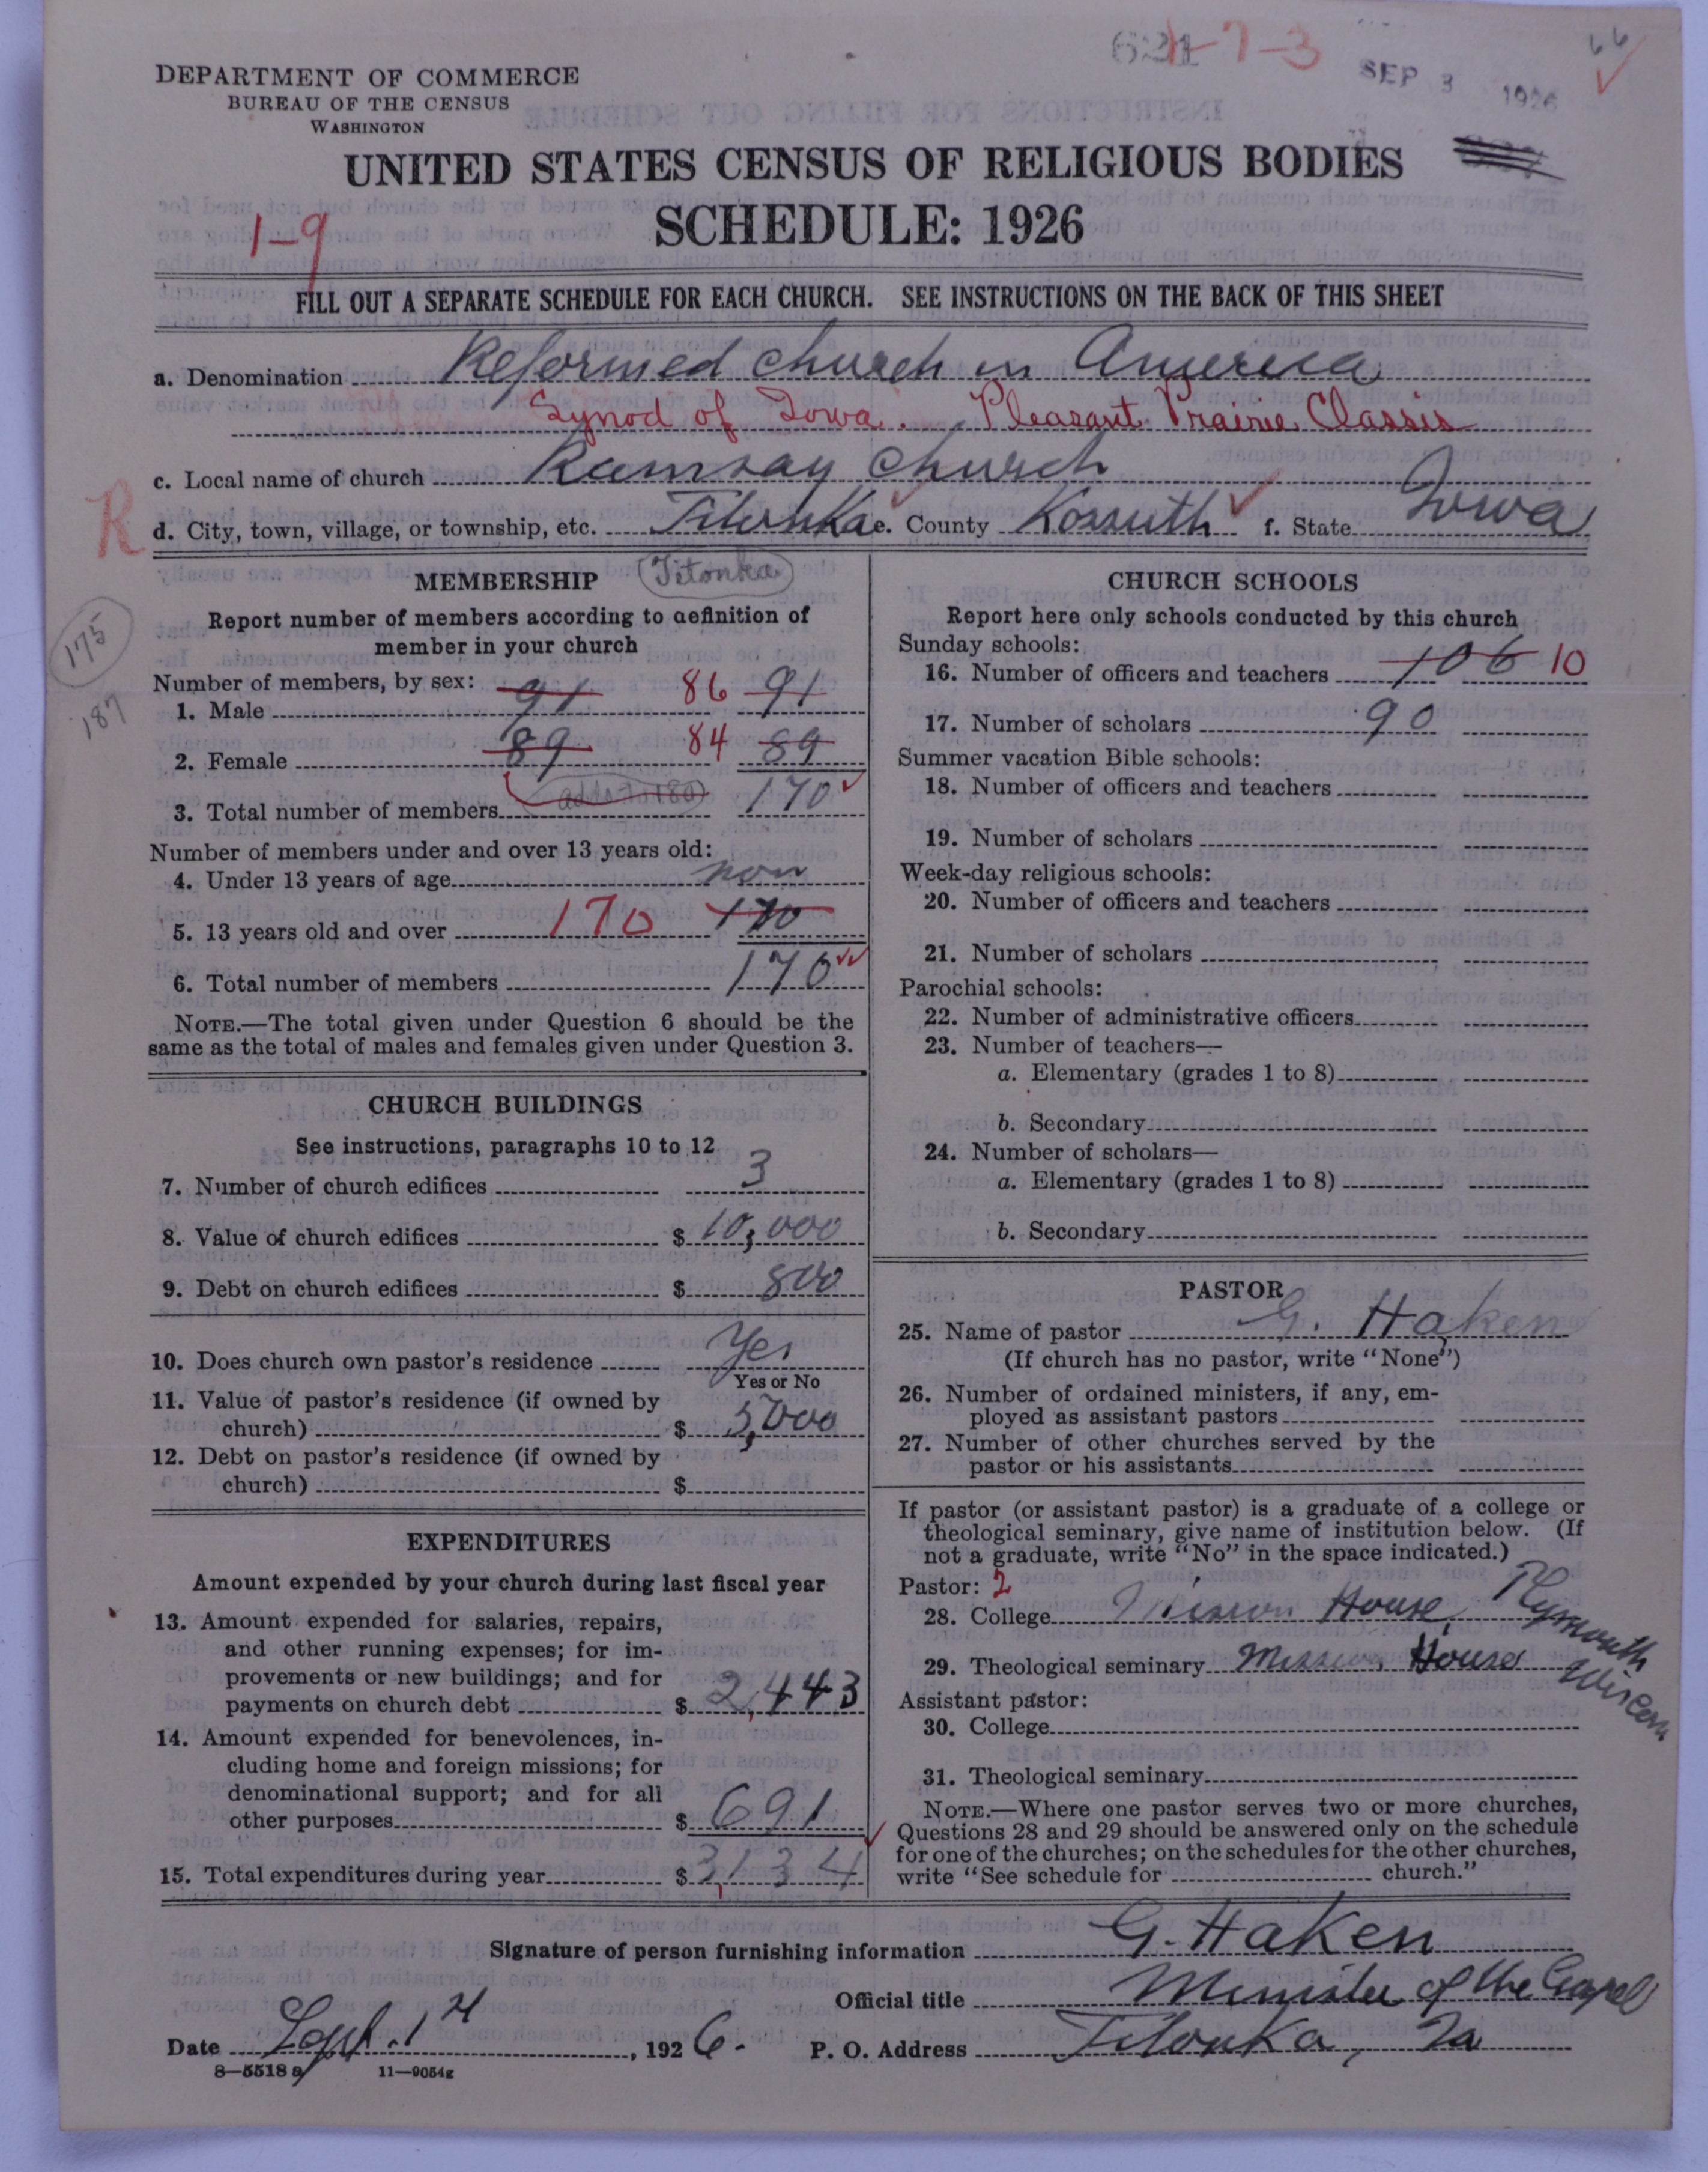 621 1-7-3
66
SEP 3 1926
DEPARTMENT OF COMMERCE
BUREAU OF THE CENSUS
WASHINGTON
UNITED STATES CENSUS OF RELIGIOUS BODIES
SCHEDULE: 1926
1-9
FILL OUT A SEPARATE SCHEDULE FOR EACH CHURCH. SEE INSTRUCTIONS ON THE BACK OF THIS SHEET
a. Denomination Reformed Church in America
Synod of Iowa. Pleasant Prairie Classis
c. Local name of church Ramsay Church
R
d. City, town, village, or township, etc. Titonka e. County Kossuth f. State Iowa
MEMBERSHIP Titonka
Report number of members according to definition of
member in your church
175
187
Number of members, by sex:
1. Male 91 86 91
2. Female 89 84 89
3. Total number of members adds to 180 170
Number of members under and over 13 years old:
4. Under 13 years of age non
5. 13 years old and over 170 170
6. Total number of members 170
NOTE.—The total given under Question 6 should be the
same as the total of males and females given under Question 3.
CHURCH BUILDINGS
See instructions, paragraphs 10 to 12
7. Number of church edifices 3
8. Value of church edifices $ 10,000
9. Debt on church edifices $ 800
10. Does church own pastor's residence Yes
Yes or No
11. Value of pastor's residence (if owned by
church) $ 5,000
12. Debt on pastor's residence (if owned by
church) $
EXPENDITURES
Amount expended by your church during last fiscal year
13. Amount expended for salaries, repairs,
and other running expenses; for im-
provements or new buildings; and for
payments on church debt $ 2,443
14. Amount expended for benevolences, in-
cluding home and foreign missions; for
denominational support; and for all
other purposes $ 691
15. Total expenditures during year $ 3,134
CHURCH SCHOOLS
Report here only schools conducted by this church
Sunday schools:
16. Number of officers and teachers 106 10
17. Number of scholars 90
Summer vacation Bible schools:
18. Number of officers and teachers
19. Number of scholars
Week-day religious schools:
20. Number of officers and teachers
21. Number of scholars
Parochial schools:
22. Number of administrative officers
23. Number of teachers—
a. Elementary (grades 1 to 8)
b. Secondary
24. Number of scholars—
a. Elementary (grades 1 to 8)
b. Secondary
PASTOR
25. Name of pastor G. Haken
(If church has no pastor, write "None")
26. Number of ordained ministers, if any, em-
ployed as assistant pastors
27. Number of other churches served by the
pastor or his assistants
If pastor (or assistant pastor) is a graduate of a college or
theological seminary, give name of institution below. (If
not a graduate, write "No" in the space indicated.)
Pastor: 2
28. College Mission House Plymouth
29. Theological seminary Mission House Wiscon
Assistant pastor:
30. College
31. Theological seminary
NOTE.—Where one pastor serves two or more churches,
Questions 28 and 29 should be answered only on the schedule
for one of the churches; on the schedules for the other churches,
write "See schedule for church."
Signature of person furnishing information G. Haken
Official title Minister of the Gospel
Date Sept. 1st, 1926. P. O. Address Titonka, Ia
8—5518 a 11—9054g